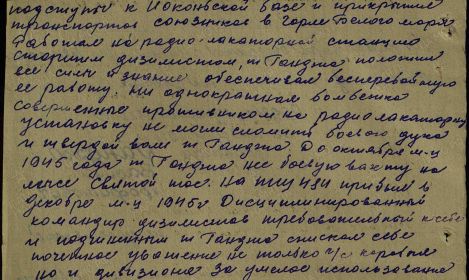 подступы к Иоконьской базе и прикрытие
транспортов союзников в горле Белого моря
Работая на радио-лакаторной станцию
старшим дизелистом, т Ганджа положил
все силы и знание обеспечивал бесперебойную
ее работу. Ни однократная бомбежка
совершенные противником на радиолакаторную
установку не могли сломить боевого духа
и твердой воли т Ганджа. До октября м-ц
1945 года т Ганджа нес боевую вахту на
мысе Святой нос. На прибыл в
декабре м-ц 1945г Дисциплинированный
командир дизелистов требовательный к себе
и подчиненным т Ганджа снискал себе
почетное уважение не только л/с
но и дивизиона За умелое использование